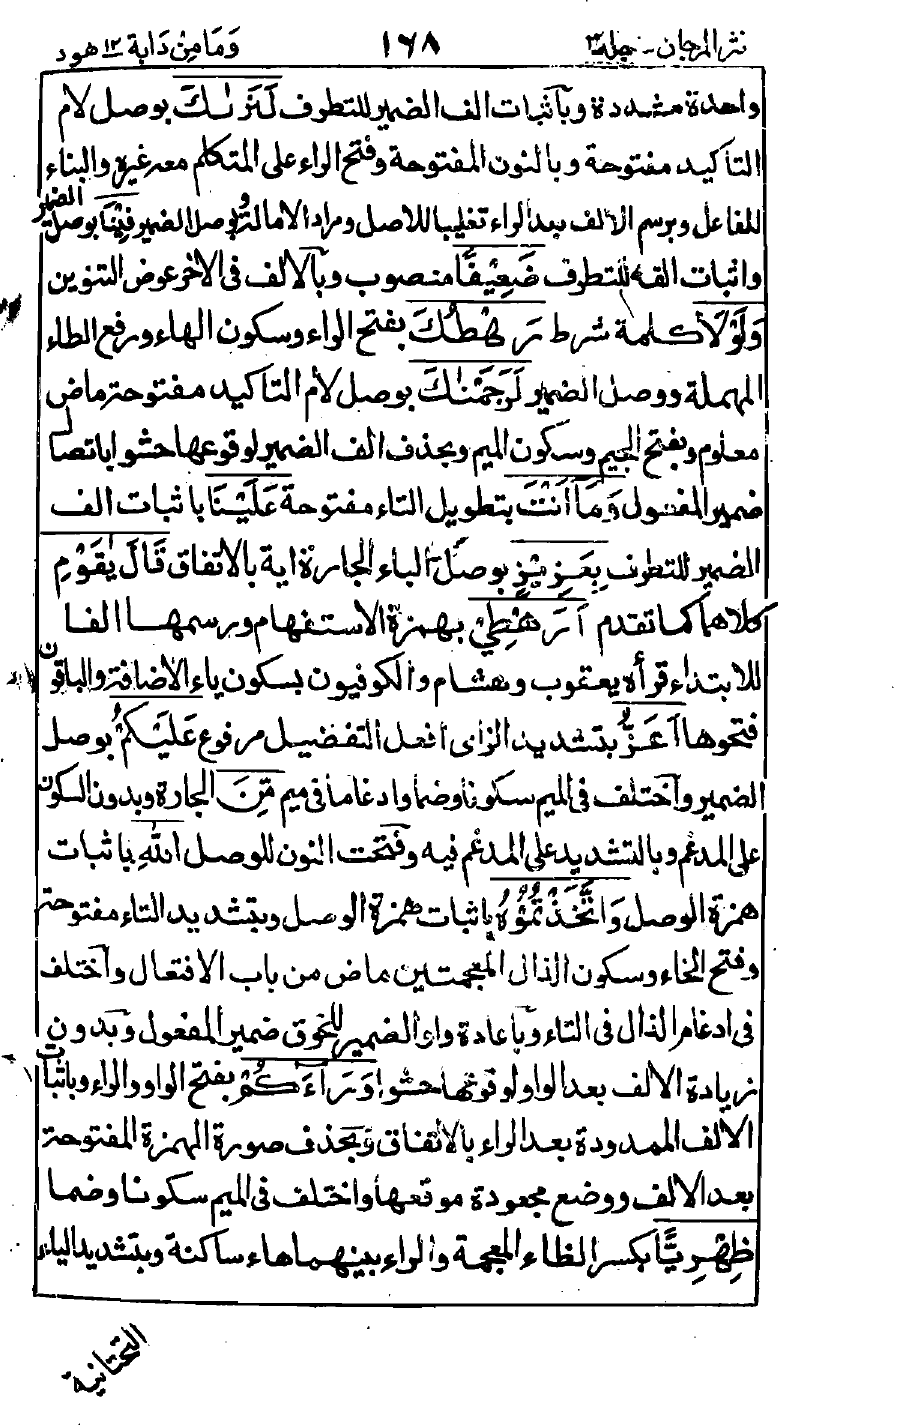 نثر المرجان - جلد ٣ ١٦٨ وَمَا مِنْ دَابة ١٢ هود
واحدة مشددة وبآثبات الف الضمير للتطرف لَنَرٰىكَ بوصل لام
التاكيد مفتوحة وبالنون المفتوحة وفتح الراء على المتكلم معه غيره والبناء
للفاعل وبرسم الالف بعد الراء تغليبا للاصل ومراد الامالة وبوصل الضمير فِيْنَا بوصل الضمير
واثبات الفه للتطرف ضَعِيْفًا منصوب وبآلالف فى الاخر عوض التنوين
وَلَوْلَا كلمة شرط رَهْطُكَ بفتح الراء وسكون الهاء ورفع الطاء
المهملة ووصل الضمير لَرَجَمْنٰكَ بوصل لام التاكيد مفتوحة ماض
معلوم وبفتح الجيم وسكون الميم وبحذف الف الضمير لوقوعها حشوا باتصال
ضمير المفعول وَمَا اَنْتَ بتطويل التاء مفتوحة عَلَيْنَا باثبات الف
الضمير للتطرف بِعَزِيْزٍ بوصل الباء الجارة اية بالاتفاق قَالَ يٰقَوْمِ
كلاهما كما تقدم اَرَهْطِيْ بهمزة الاستفهام ورسمها الفا
للابتداء قرأه يعقوب وهشام والكوفيون بسكون ياء الاضافة والباقون
فتحوها اَعَزُّ بتشديد الزاى افعل التفضيل مرفوع عَلَيْكُمْ بوصل
الضمير وآختلف فى الميم سكونا وضما وادغاما فى ميم مِّنَ الجارة وبدون السكون
على المدغم وبالتشديد على المدغم فيه وفتحت النون للوصل اللّٰهِ باثبات
همزة الوصل وَاتَّخَذْتُمُوْهُ باثبات همزة الوصل وبتشديد التاء مفتوحة
وفتح الخاء وسكون الذال المعجمتين ماض من باب الافتعال وآختلف
فى ادغام الذال فى التاء وبآعادة واو الضمير للحوق ضمير المفعول وبدون
زيادة الالف بعد الواو لوقوعها حشوا وَرَاءَكُمْ بفتح الواو والراء وباثبات
الالف الممدودة بعد الراء بالاتفاق وبحذف صورة الهمزة المفتوحة
بعد الالف ووضع مجعودة موقعها واختلف فى الميم سكونا وضما
ظِهْرِيًّا بكسر الظاء المعجمة والراء بينهما هاء ساكنة وبتشديد الياء
التحتانية